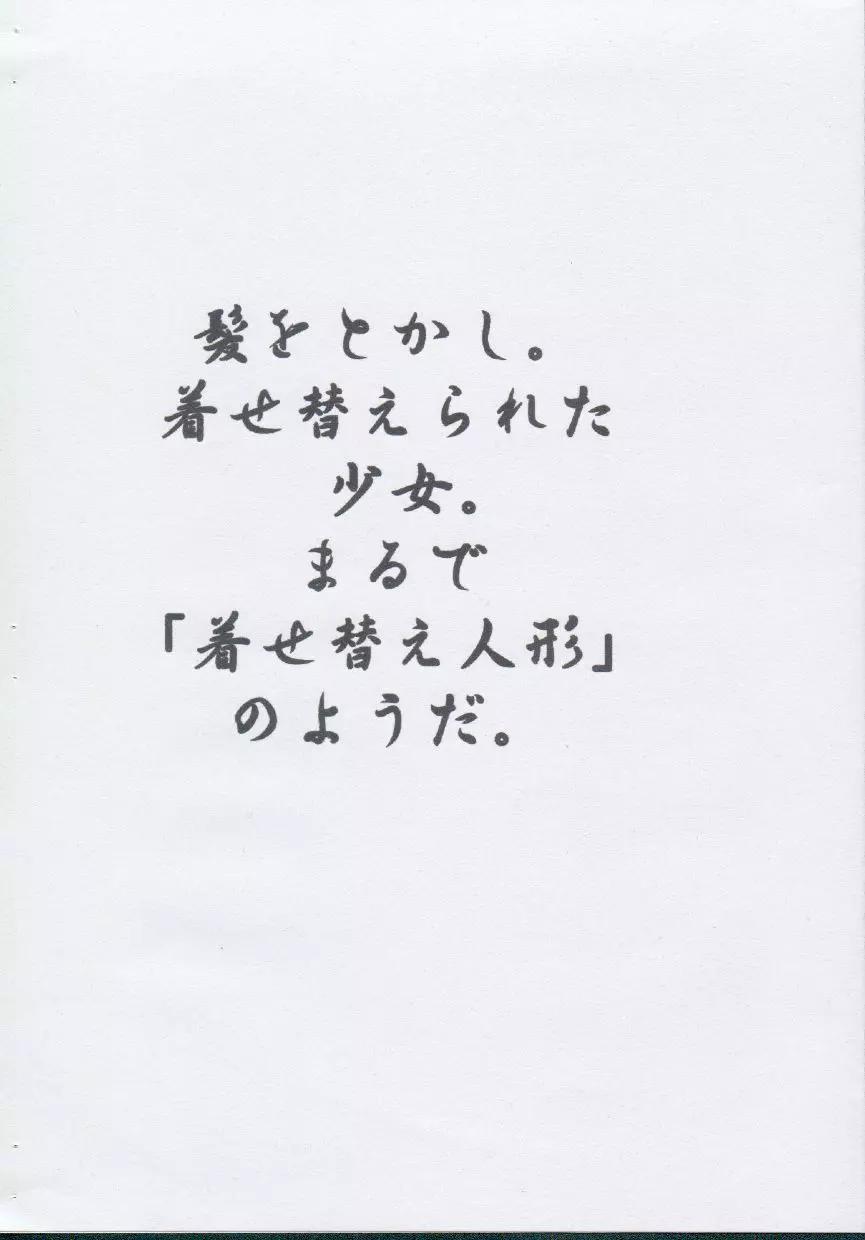 髪をとかし。
着せ替えられた
少女。
まるで
「着せ替え人形」
のようだ。